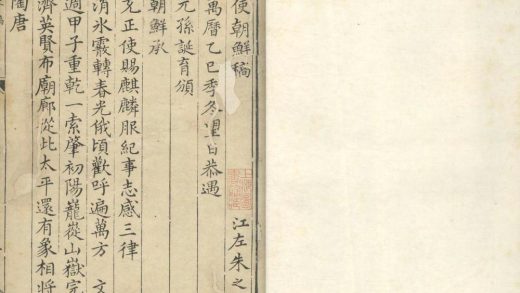 使朝鮮稿
江左朱之
萬曆乙巳季冬望日恭遇
元孫誕育頒
朝鮮承
乏正使賜麒麟服紀事志感三律
消氷霰轉春光俄頃歡呼遍萬方 文
週甲子重乾一索肇初陽巃嵸山嶽完
濟英賢布廟廊從此太平還有象相將
陶唐